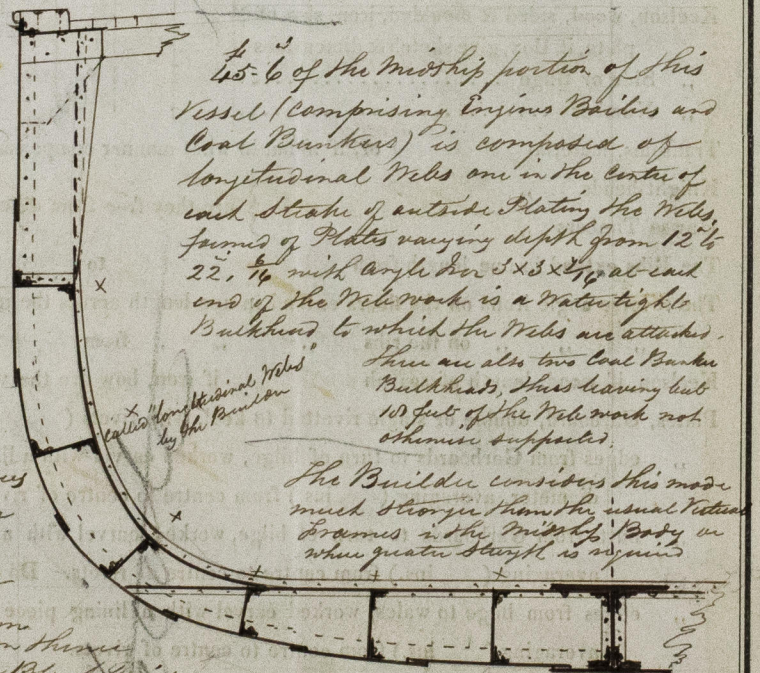 45 ft - 6 of the Midship portion of this
Vessel (comprising Engines Boilers and
Coal Bunkers) is composed of
longitudinal Webs one in the Centre of
each Strake of outside Plating the Webs,
formed of Plates varying depth from 12" to
22, 6/16 with angle Iron 3 x 3 x /16 at each
end of the Web work is a Watertight
Bulkhead to which the Webs are attached.
There are also two Coal Bunker
Bulkheads, thus leaving but
feet of the Web work not
otherwise supported.
x
called "longitudinal Webs"
by the Builder
The Builder considers this mode
much stronger than the usual Vertical
Frames in the Midship Body or
where greater strength is required